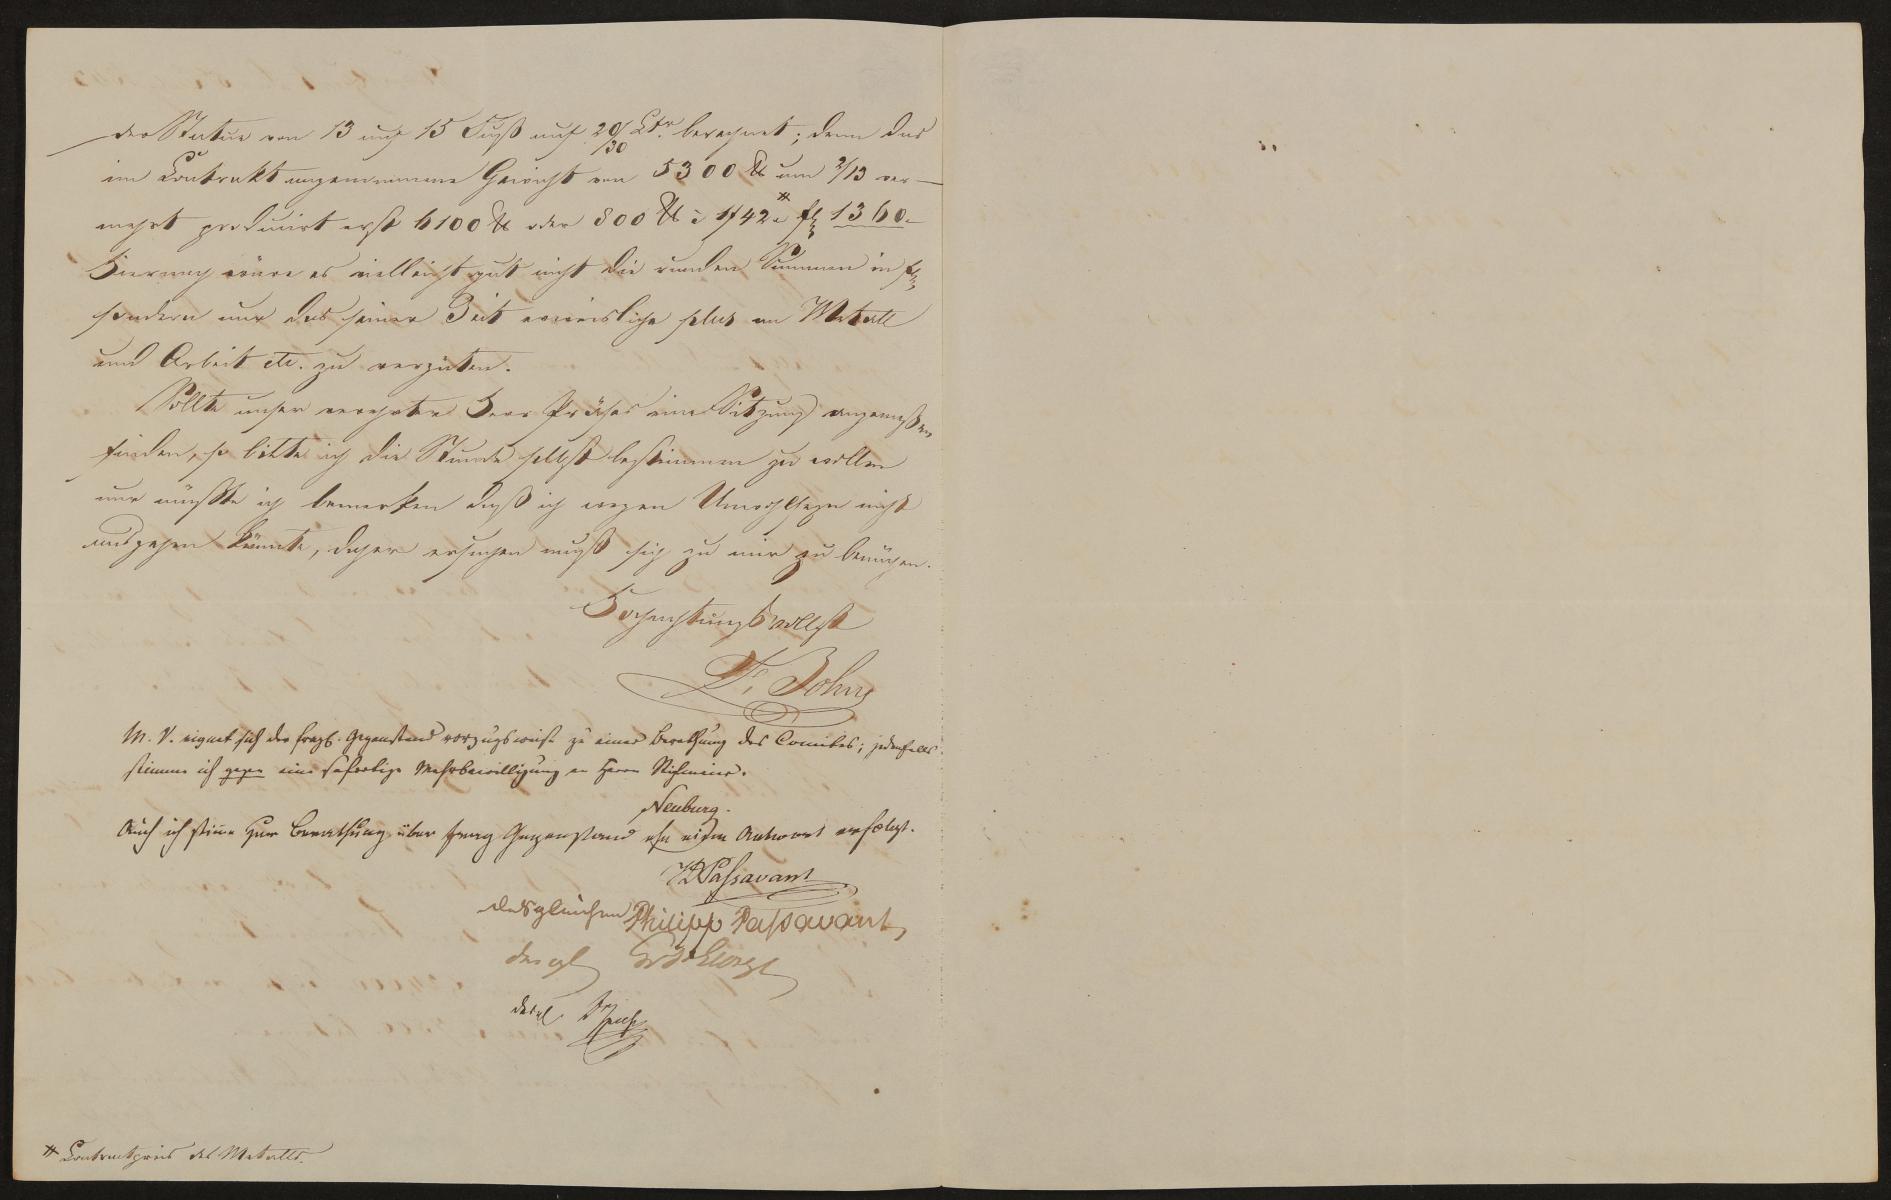 der Statue von 13 auf 15 Fuß auf 20/30 Ctr berechnet; denn das
im Contrakt angenommene Gewicht von 5300 ℔ um 2/13 ver-
mehrt producirt erst 6100 ℔ oder 800 ℔ à 1f42x * fl 1360.-
Hiernach wäre es vielleicht gut nicht die runden Summen in fl
sondern nur das seiner Zeit erweisliche plus an Metall
und Arbeit etc. zu vergüten.
Sollte unser verehrter Herr Präses eine Sitzung angemeßen
finden, so bitte ich die Stunde selbst bestimmen zu wollen
nur müßte ich bemerken daß ich wegen Unwohlseyn nicht
ausgehen könnte, daher ersuchen muß sich zu mir zu bemühen.
Hochachtungsvollst
M. V. eignet sich der fragl. Gegenstand vorzugsweise zu einer Berathung des Comites; jedenfalls
stimme ich gegen eine sofortige Mehrbewilligung an Herrn
Neuburg.
Auch ich stime zur Berathung über frag Gegenstand ehe eine Antwort erfolgt.
JDPassavant
desgleichen Philipp Passavant
desgl
desgl.
* Contractpreis des Metalls.